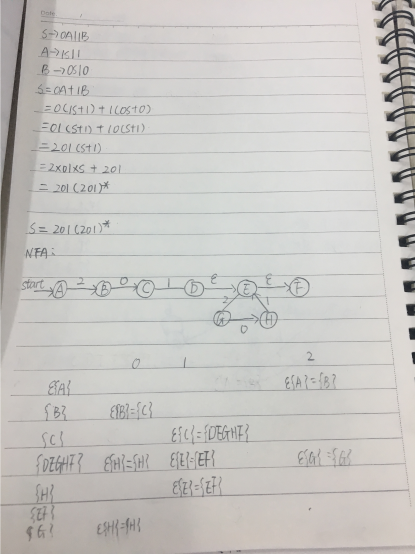 S→0A|1B
A→1S|1
B→0S|0
S=0A+1B
=0(1S+1)+1(0S+0)
=01(S+1)+10(S+1)
=201(S+1)
=2×01×S+201
=201(201)*
S=201(201)*
NFA:
start A 2 B 0 C 1 D ε E ε F
2 1
G 0 H
0 1 2
ε{A} ε{A}={B}
{B} ε{B}={C}
{C} ε{C}={DEGHF}
{DEGHF} ε{H}={H} ε{E}={EF} ε{G}={G}
{H} ε{E}={EF}
{EF}
{G} ε{H}={H}